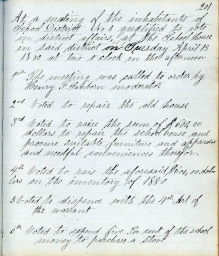 201
At a meeting of the inhabitants of
School District No qualified to vote
in district affairs at the School House
in said district on Tuesday April 13
1880 at two o'clock in the afternoon
1st The meeting was called to order by
Henry F. moderator
2nd Voted to repair the old house
3rd Voted to raise the sum of
dollars to repair the school house and
procure suitable furniture and apparatus
and needful conveniences therefor.
4th Voted to raise the aforesaid
on the inventory of 1880
5 Voted to dispense with the 4th Art of
the warrant
6th Voted to expend five per cent of the school
money to purchase a stove